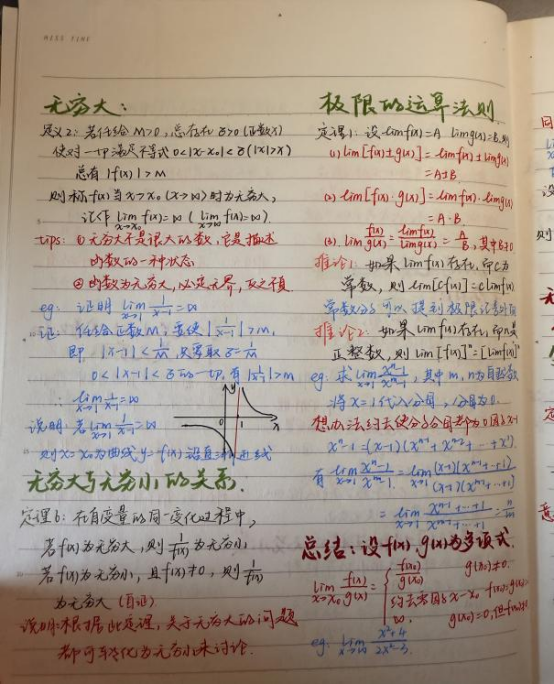 MISS TIME
无穷大:
定义2: 若任给 M>0, 总存在 δ>0 (正数X)
使对一切满足不等式 0<|x-x₀|<δ (|x|>X)
总有 |f(x)|>M
则称 f(x) 当 x→x₀ (x→∞) 时为无穷大,
记作 lim x→x₀ f(x)=∞ (lim x→∞ f(x)=∞)
tips: ① 无穷大不是很大的数, 它是描述
函数的一种状态
② 函数为无穷大, 必定无界, 反之不真
eg: 证明 lim x→1 1/(x-1)=∞
证: 任给正数M, 要使 |1/(x-1)|>M,
即 |x-1|<1/M, 只要取 δ=1/M
0<|x-1|<δ 的一切, 有 |1/(x-1)|>M
∴ lim x→1 1/(x-1)=∞
y
0 1 x
说明: 若 lim x→1 1/(x-1)=∞
则 x=x₀ 为曲线 y=f(x)
无穷大与无穷小的关系.
定理6: 在自变量的同一变化过程中,
若 f(x) 为无穷大, 则 1/f(x) 为无穷小
若 f(x) 为无穷小, 且 f(x)≠0, 则 1/f(x)
为无穷大 (自证)
说明: 根据此定理, 关于无穷大的问题
都可转化为无穷小来讨论.
极限的运算法则
定理1: 设 lim f(x)=A lim g(x)=B, 则
(1) lim[f(x)±g(x)] = lim f(x) ± lim g(x)
= A±B
(2) lim[f(x)·g(x)] = lim f(x)·lim g(x)
= A·B
(3) lim f(x)/g(x) = lim f(x)/lim g(x) = A/B, 其中B≠0
推论1: 如果 lim f(x) 存在, 而 c 为
常数, 则 lim[cf(x)]=c lim f(x)
常数因子可以提到极限记号外面
推论2: 如果 lim f(x) 存在, 而 n 是
正整数, 则 lim[f(x)]ⁿ=[lim f(x)]ⁿ
eg: 求 lim x→1 (xⁿ-1)/(xᵐ-1), 其中 m, n 为自然数
将 x=1 代入分母, 分母为0.
想办法约去使分子分母都为0因子x-1
xⁿ-1=(x-1)(xⁿ⁻¹+xⁿ⁻²+…+x⁰)
有 lim x→1 (xⁿ-1)/(xᵐ-1) = lim x→1 (x-1)(xⁿ⁻¹+…+1)/(x-1)(xᵐ⁻¹+…+1)
= lim x→1 (xⁿ⁻¹+…+1)/(xᵐ⁻¹+…+1) = n/m
总结: 设 f(x). g(x) 为多项式.
lim x→x₀ f(x)/g(x) = { f(x₀)/g(x₀) g(x₀)≠0.
约去公因子 x-x₀
∞, g(x₀)=0, 但
eg: lim x→∞ (x²+4)/(2x²-3)